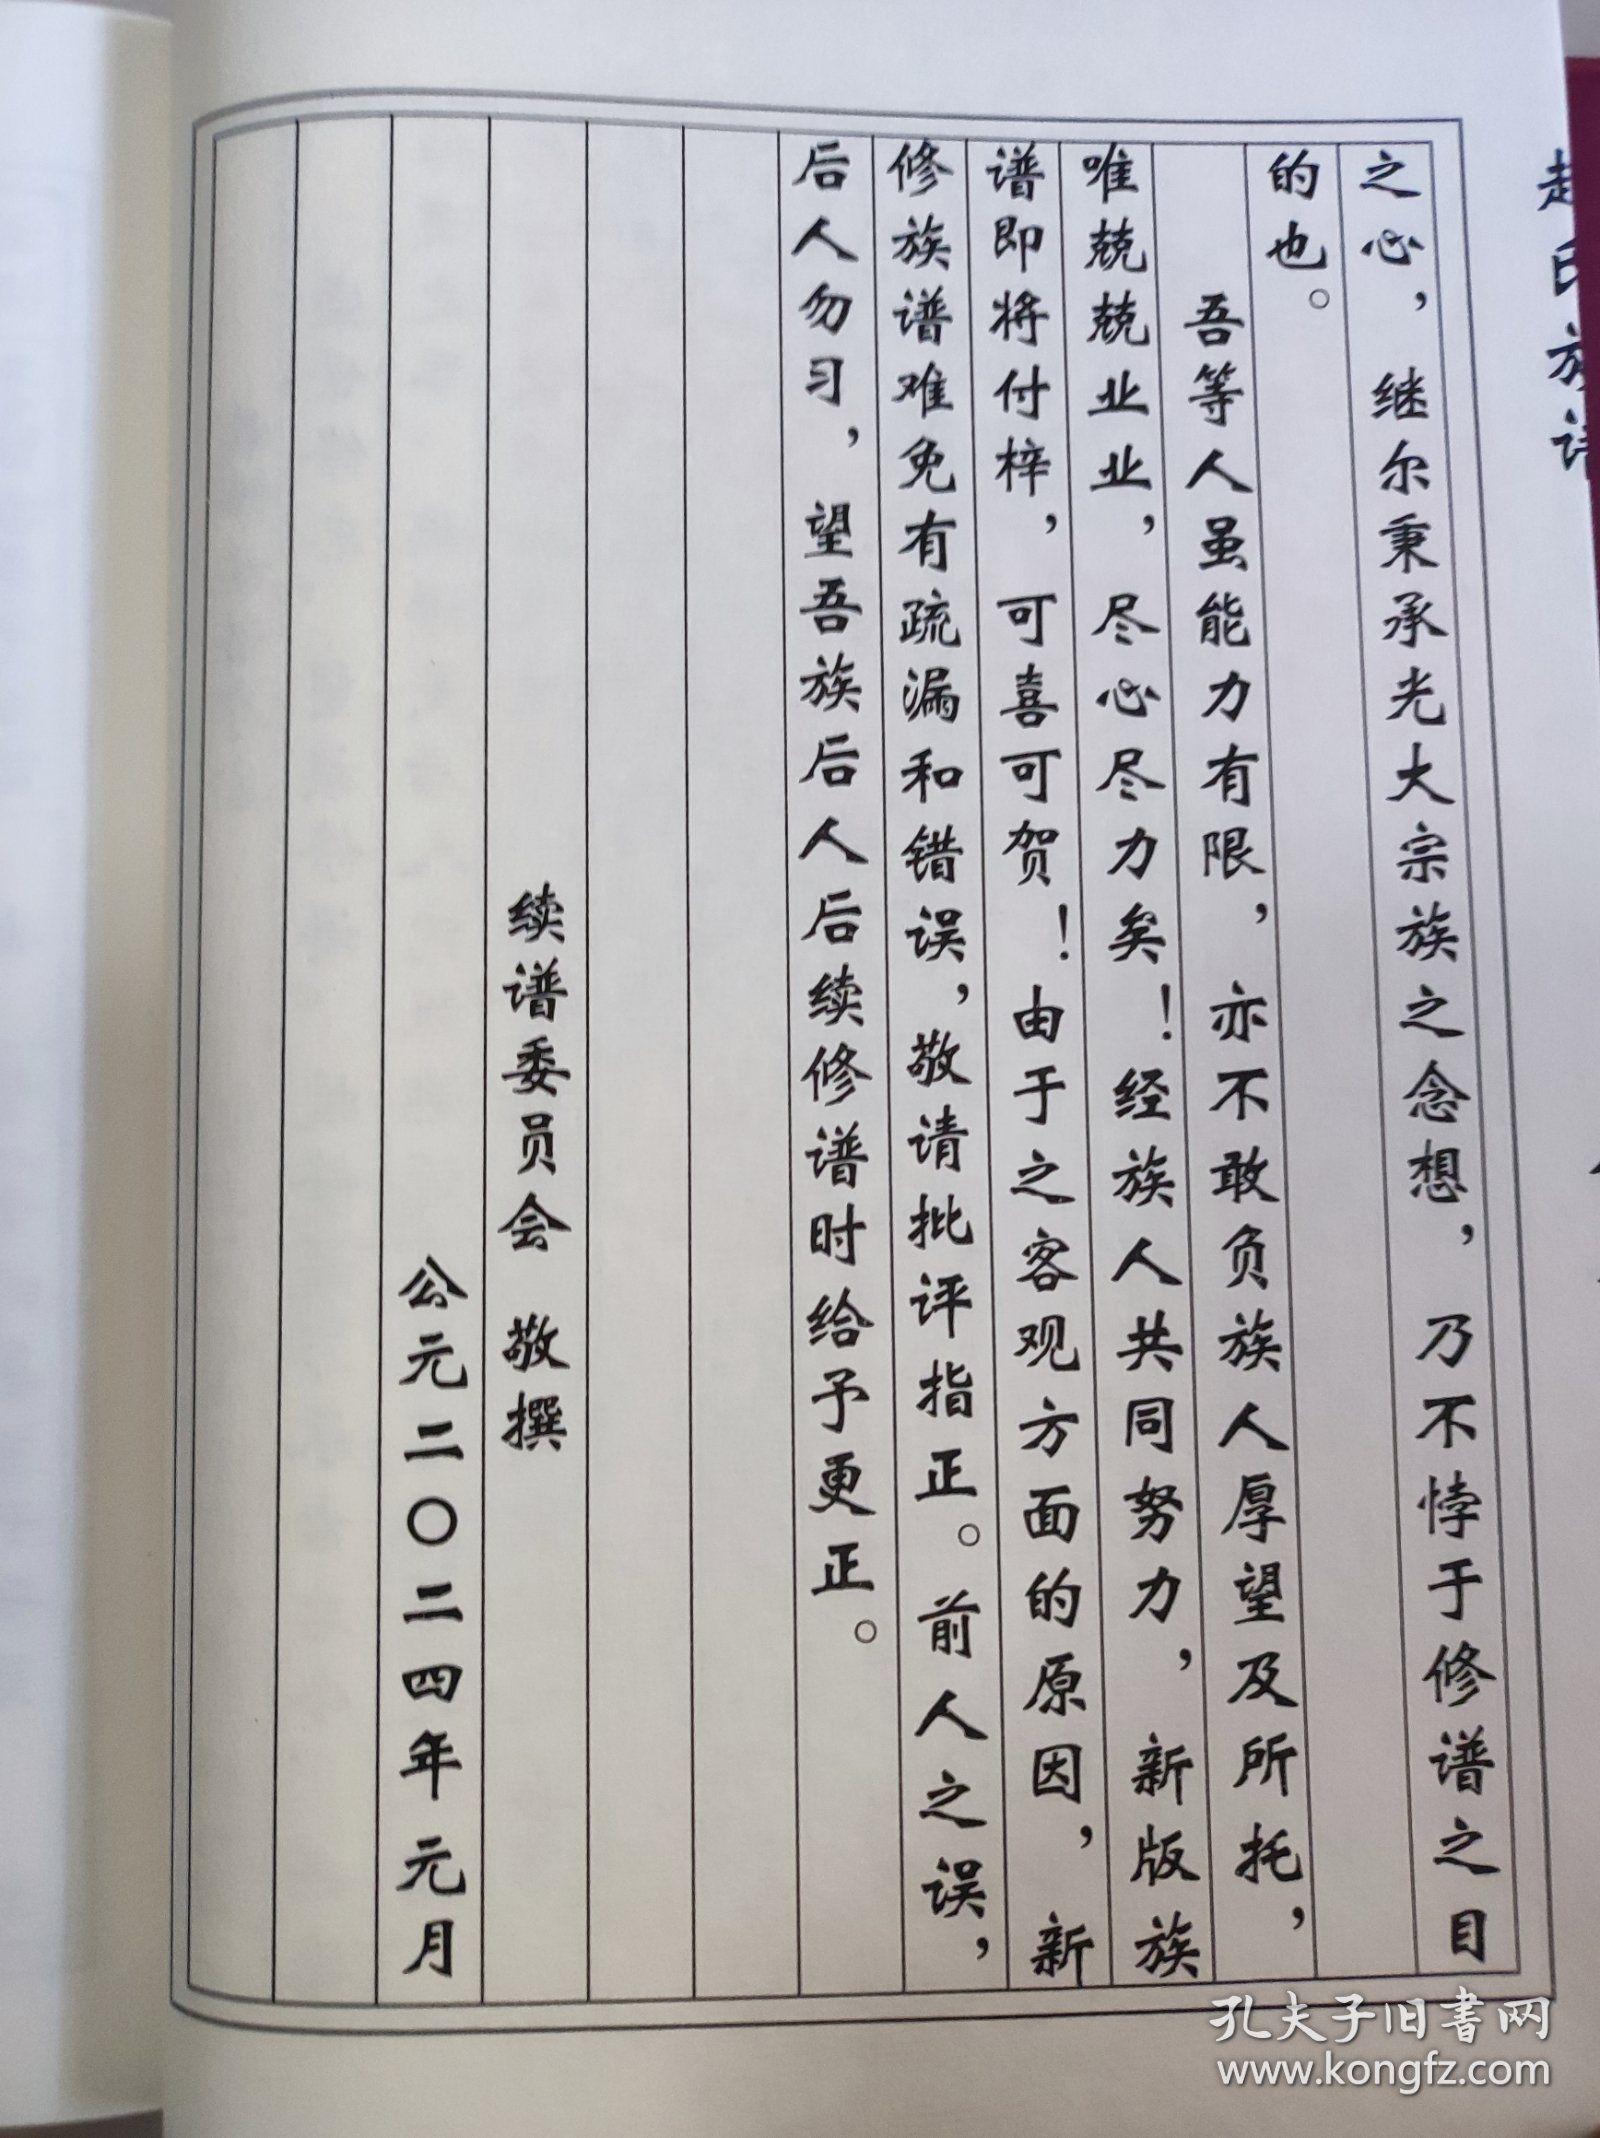 赵氏族谱
之心，继尔秉承光大宗族之念想，乃不悖于修谱之目
的也。
吾等人虽能力有限，亦不敢负族人厚望及所托，
唯兢兢业业，尽心尽力矣！经族人共同努力，新版族
谱即将付梓，可喜可贺！由于之客观方面的原因，新
修族谱难免有疏漏和错误，敬请批评指正。前人之误，
后人勿习，望吾族后人后续修谱时给予更正。
续谱委员会 敬撰
公元二〇二四年元月
孔夫子旧书网
www.kongfz.com